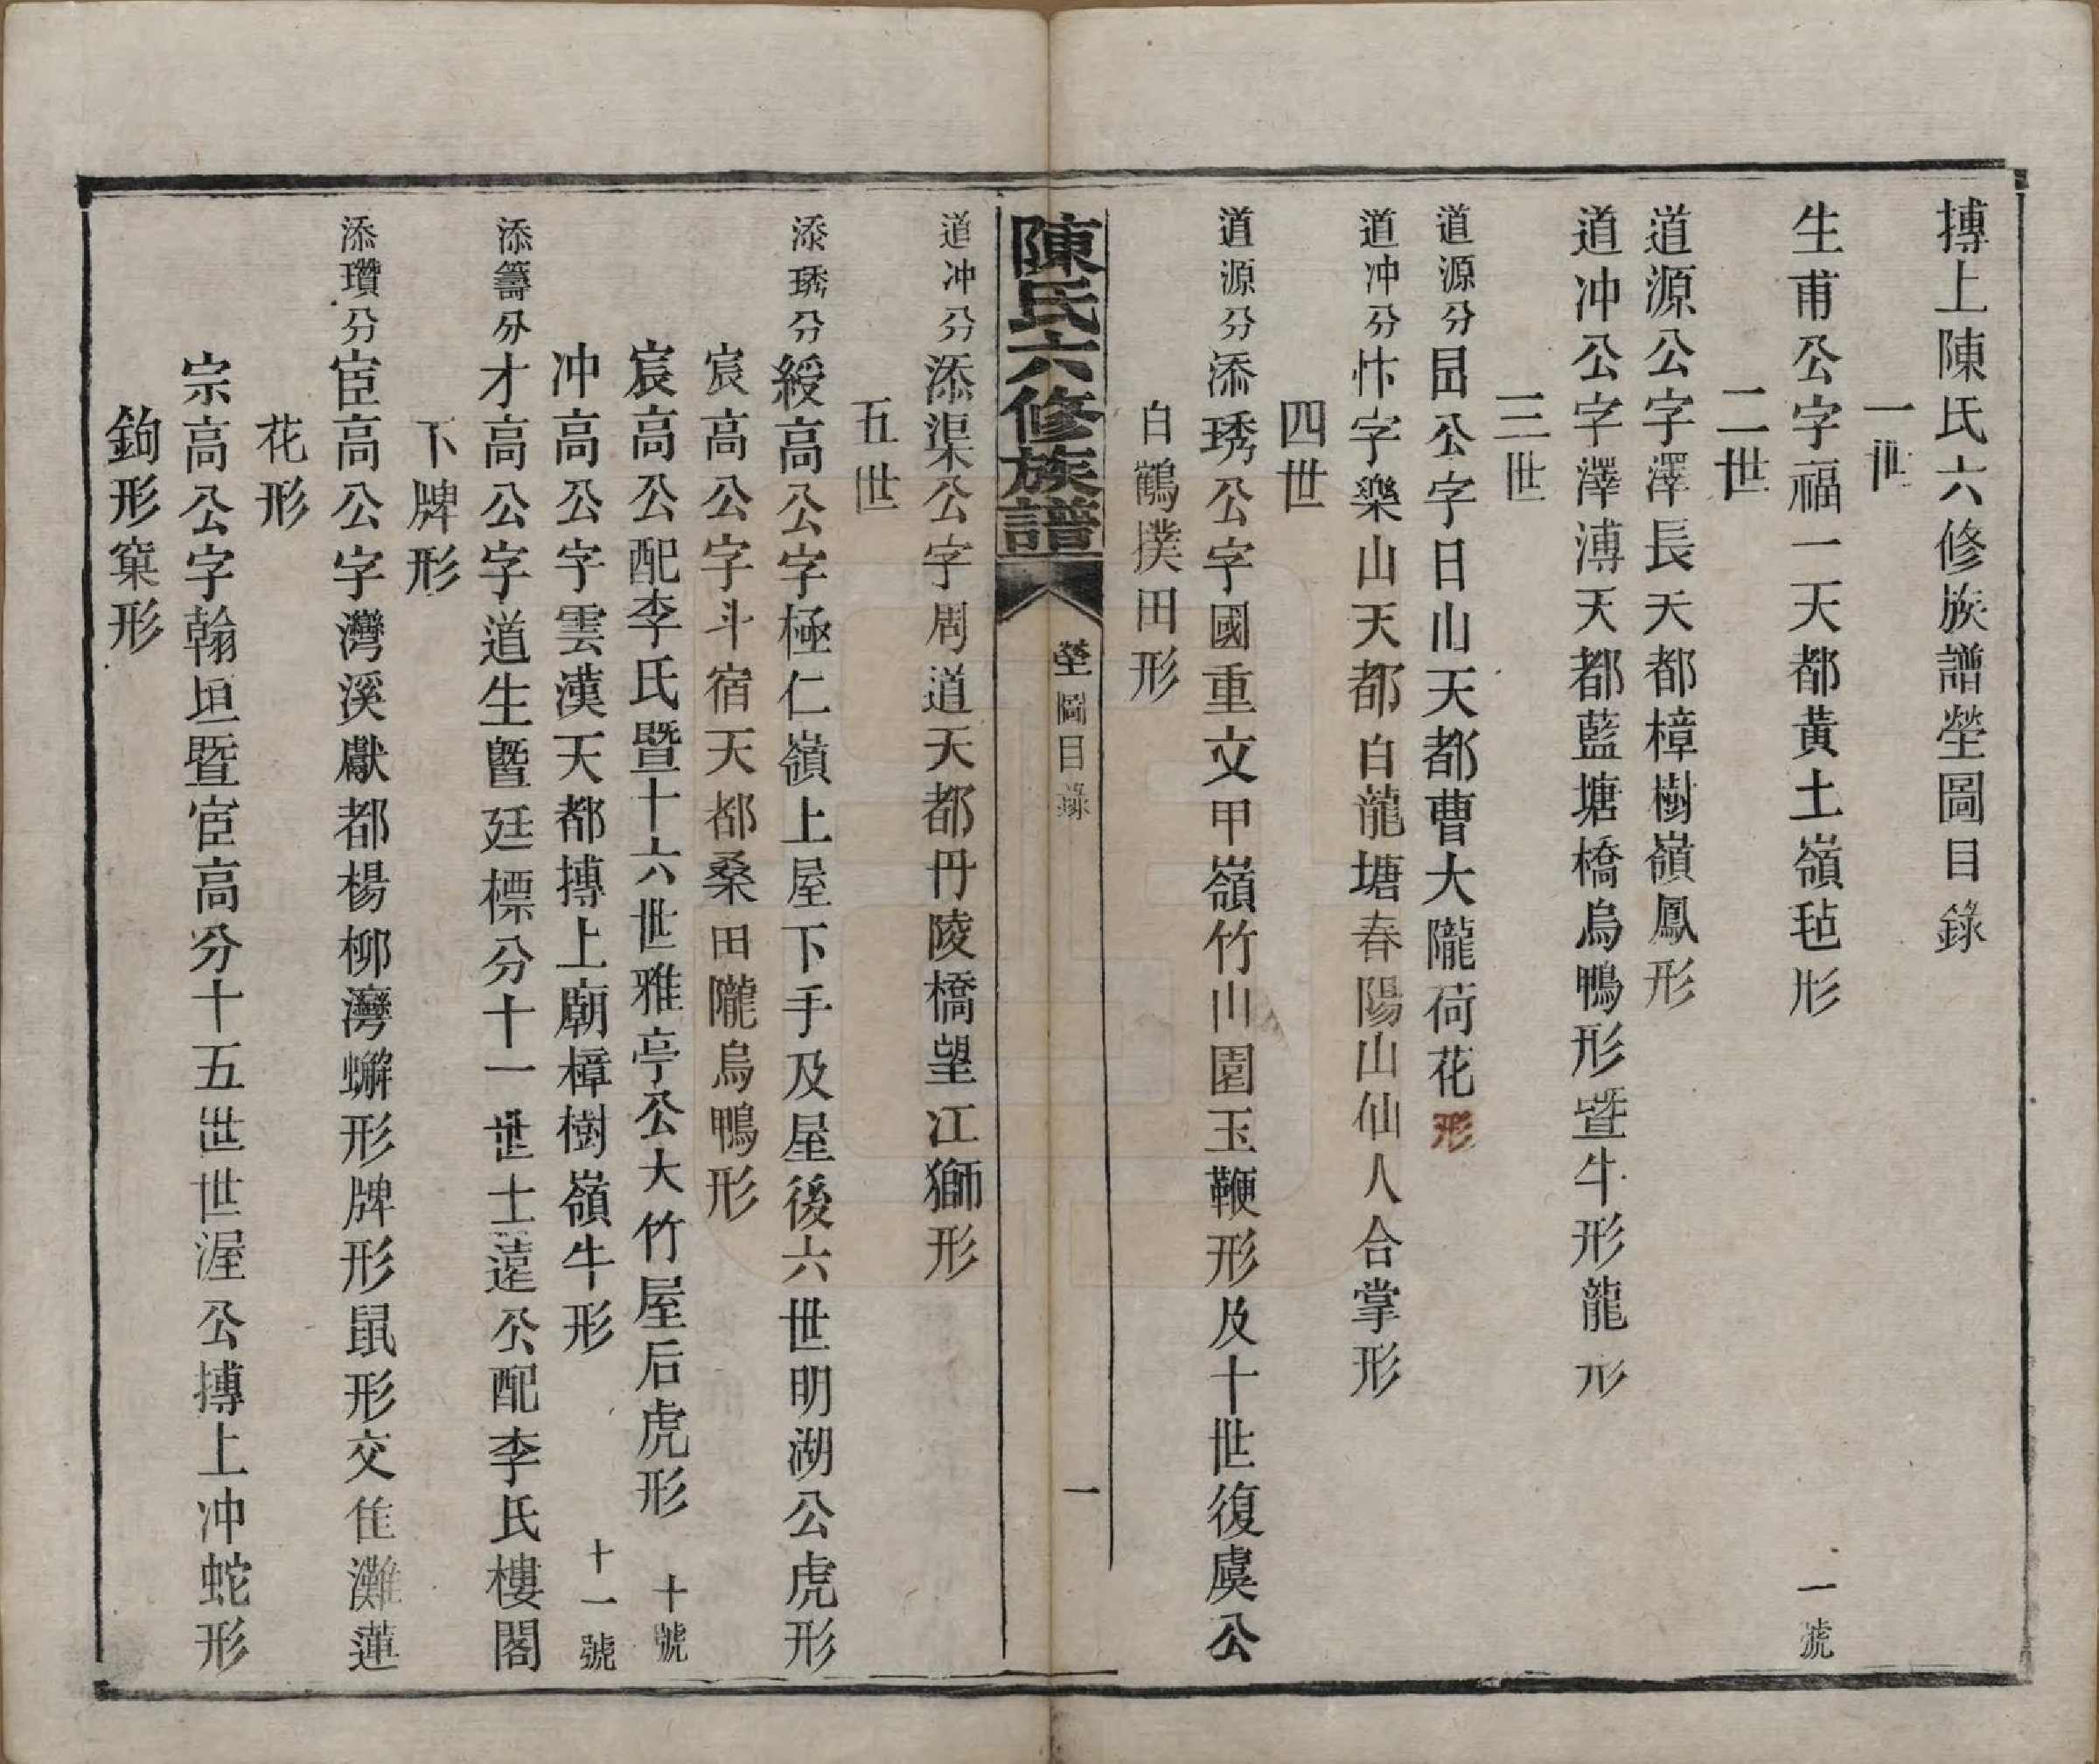 摶上陳氏六修族譜塋圖目錄
一世
生甫公字福一天都黃土嶺毡形　一號
二世
道源公字澤長天都樟樹嶺鳳形
道冲公字澤溥天都藍塘橋烏鴨形暨牛形龍形
三世
道源分昷公字日山天都曹大隴荷花形
道冲分忭字樂山天都白龍塘春陽山仙人合掌形
四世
道源分添琇公字國重文甲嶺竹山園玉鞭形及十世復虞公
白鶴撲田形
陳氏六修族譜
塋圖目錄
一
道冲分添渠公字周道天都丹陵橋望江獅形
五世
添琇分綬高公字極仁嶺上屋下手及屋後六世明湖公虎形
宸高公字斗宿天都桑田隴烏鴨形
宸高公配李氏暨十六世雅亭公大竹屋后虎形　十號
冲高公字雲漢天都摶上廟樟樹嶺牛形　十一號
添籌分才高公字道生暨廷標分十一世士遠公配李氏樓閣
下牌形
添瓚分宦高公字灣溪獻都楊柳灣蠏形牌形鼠形交隹灘蓮
花形
宗高公字翰垣暨宦高分十五世世渥公摶上冲蛇形
鉤形窠形